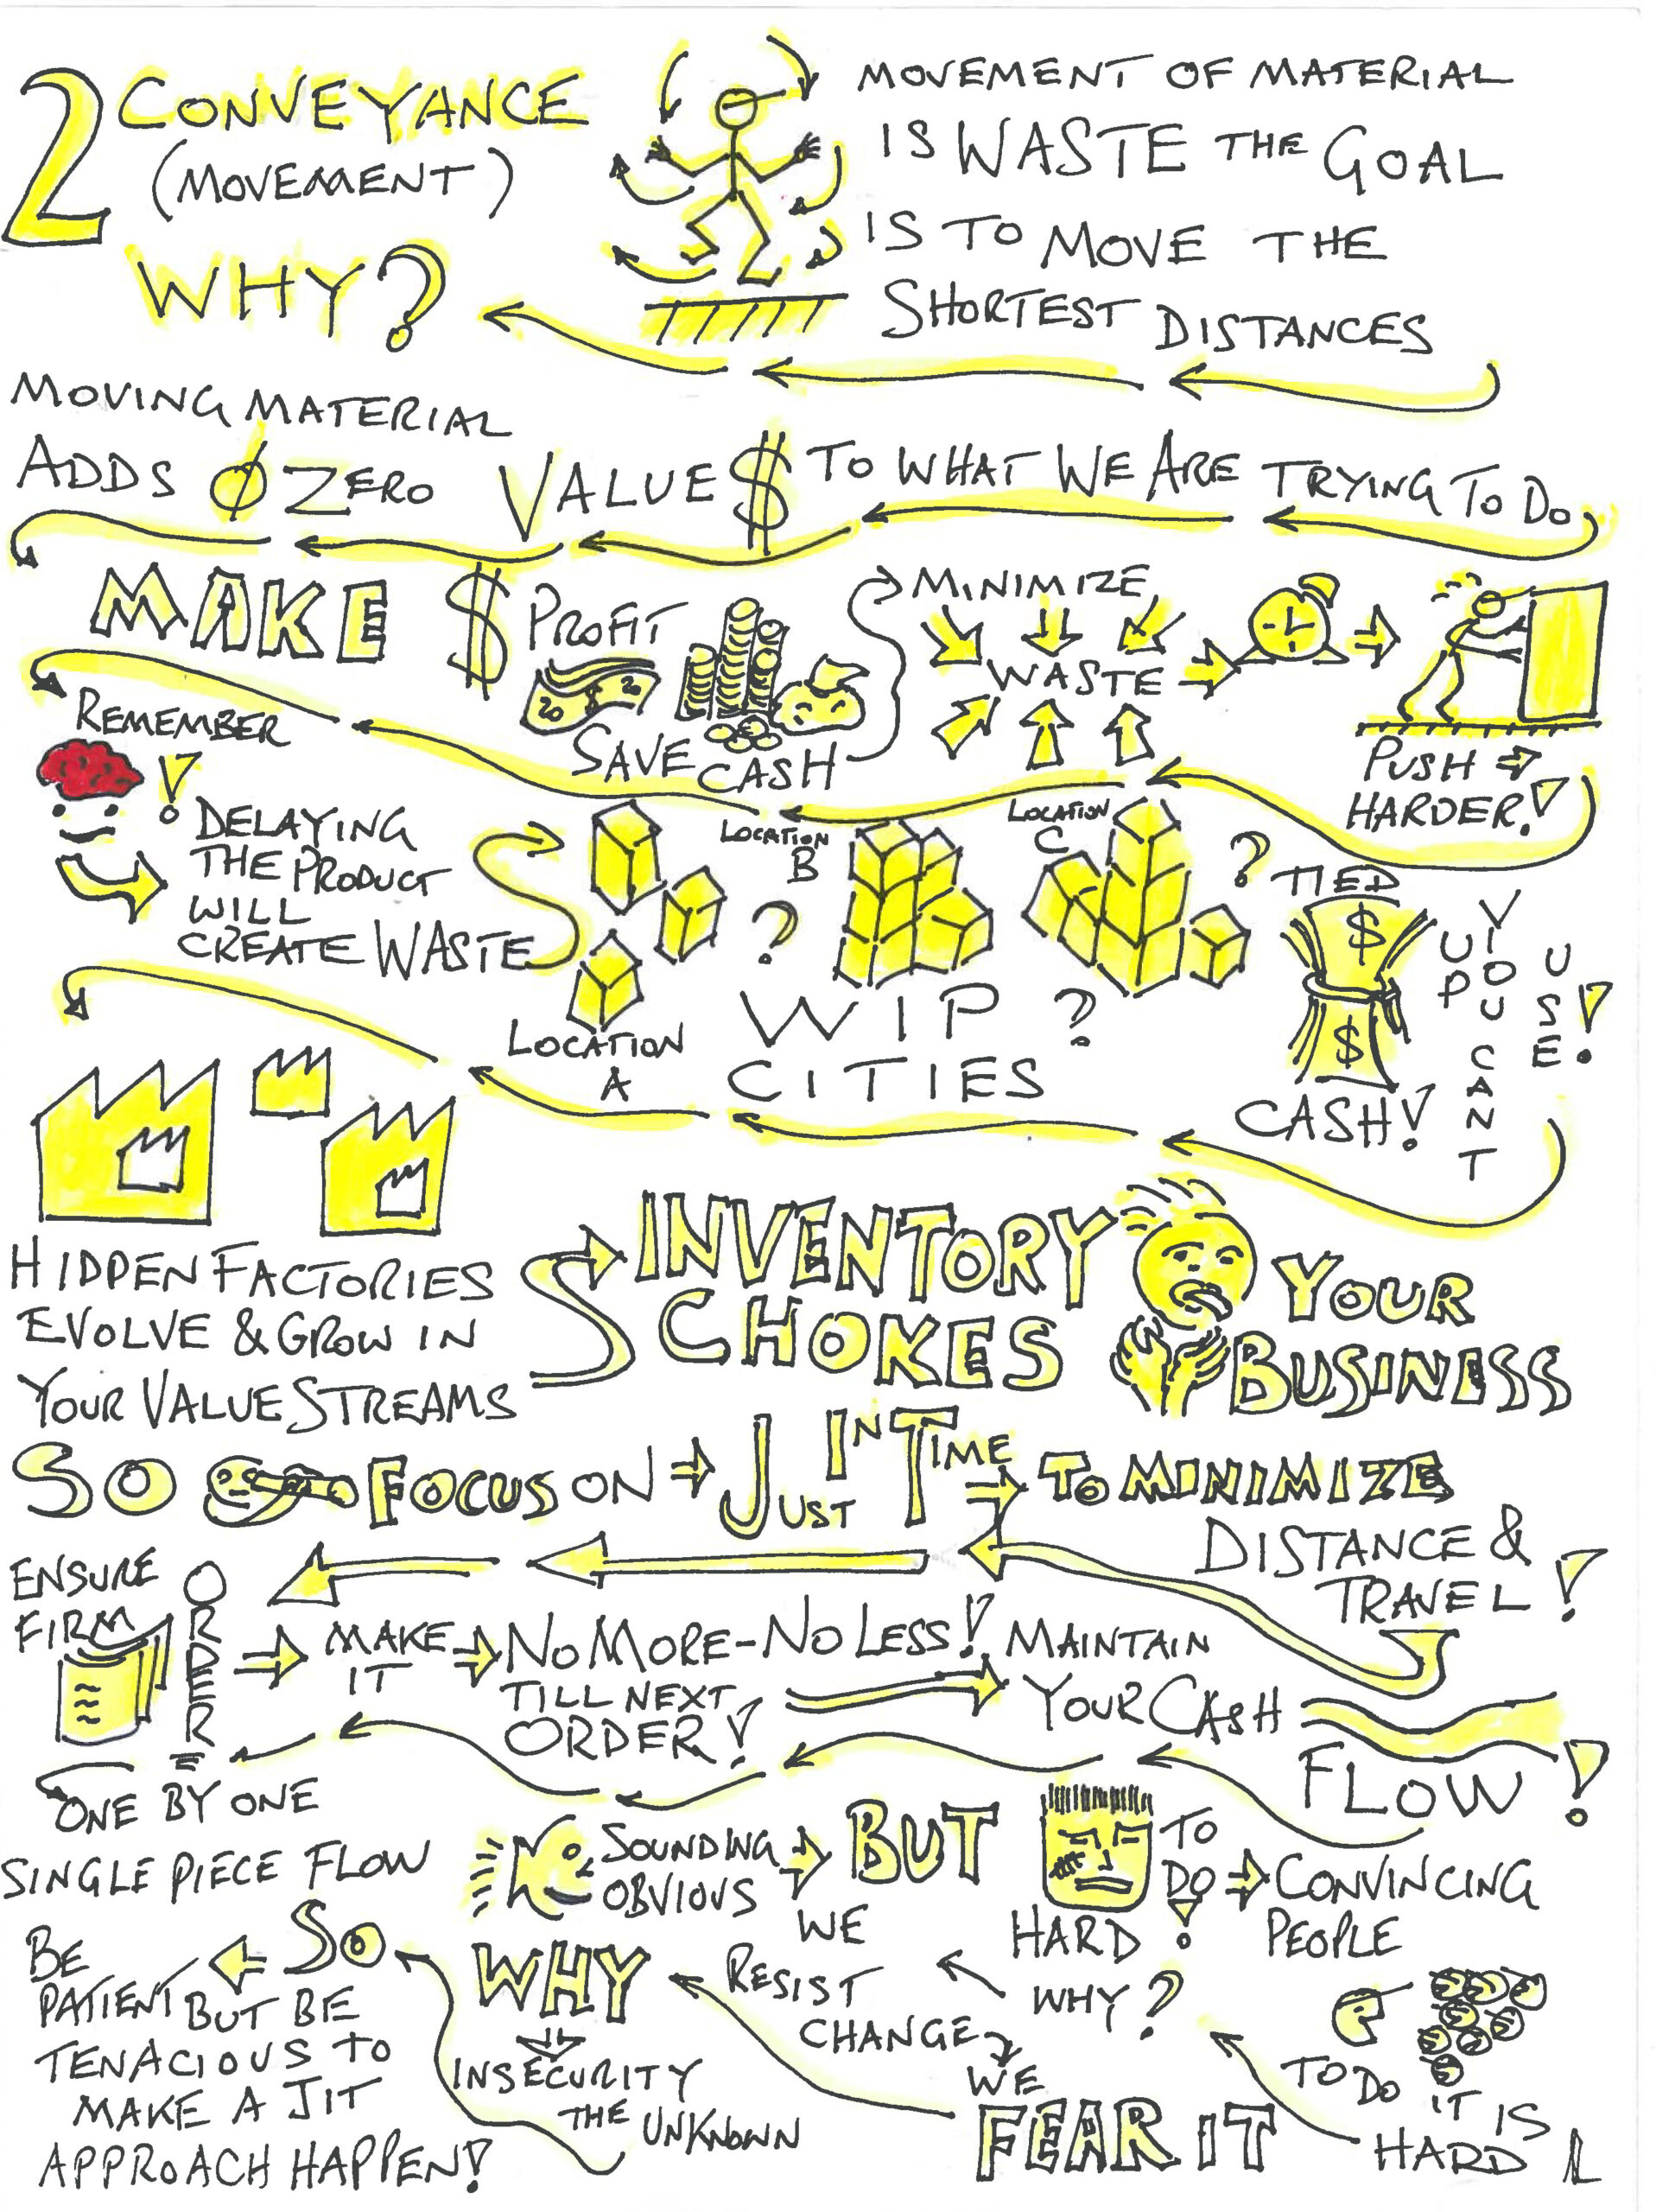 2 CONVEYANCE
(MOVEMENT)
WHY?
MOVEMENT OF MATERIAL
IS WASTE THE GOAL
IS TO MOVE THE
SHORTEST DISTANCES
MOVING MATERIAL
ADDS Ø ZERO VALUE $ TO WHAT WE ARE TRYING TO DO
MAKE $ PROFIT
20 $ 20
SAVE CASH
MINIMIZE
WASTE
PUSH
HARDER!
REMEMBER
!
DELAYING
THE PRODUCT
WILL
CREATE WASTE
LOCATION
A
?
LOCATION
B
LOCATION
C
?
WIP ?
CITIES
TIED
UP
$
$
CASH!
YOU CANT
USE!
HIDDEN FACTORIES
EVOLVE & GROW IN
YOUR VALUE STREAMS
INVENTORY
CHOKES
YOUR
BUSINESS
SO FOCUS ON JUST IN TIME TO MINIMIZE
DISTANCE &
TRAVEL!
ENSURE
FIRM
ORDER
MAKE
IT
NO MORE-NO LESS!
TILL NEXT
ORDER!
MAINTAIN
YOUR CASH
FLOW!
ONE BY ONE
SINGLE PIECE FLOW
SOUNDING
OBVIOUS
BUT
HARD
TO
DO!
CONVINCING
PEOPLE
TO DO IT IS
HARD
WHY?
WE
RESIST
CHANGE
WE
FEAR IT
WHY
INSECURITY
THE UNKNOWN
SO
BE
PATIENT BUT BE
TENACIOUS TO
MAKE A JIT
APPROACH HAPPEN!